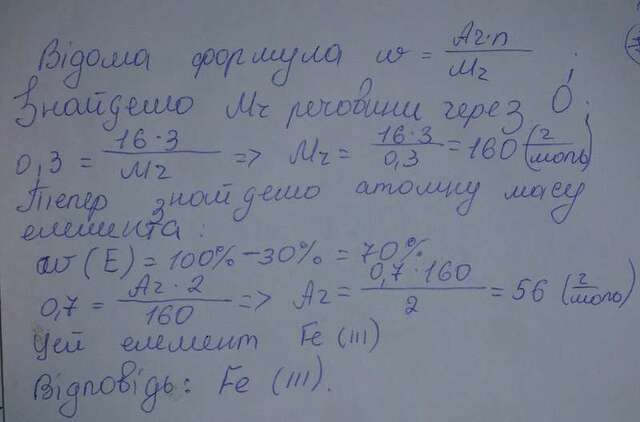 Відома формула w = Ar·n / Mr ;
Знайдемо Mr речовини через O;
0,3 = 16·3 / Mr => Mr = 16·3 / 0,3 = 160 (г/моль)
Тепер знайдемо атомну масу
елемента:
w(E) = 100% - 30% = 70%
0,7 = Ar·2 / 160 => Ar = 0,7·160 / 2 = 56 (г/моль)
Цей елемент Fe (III)
Відповідь: Fe (III).